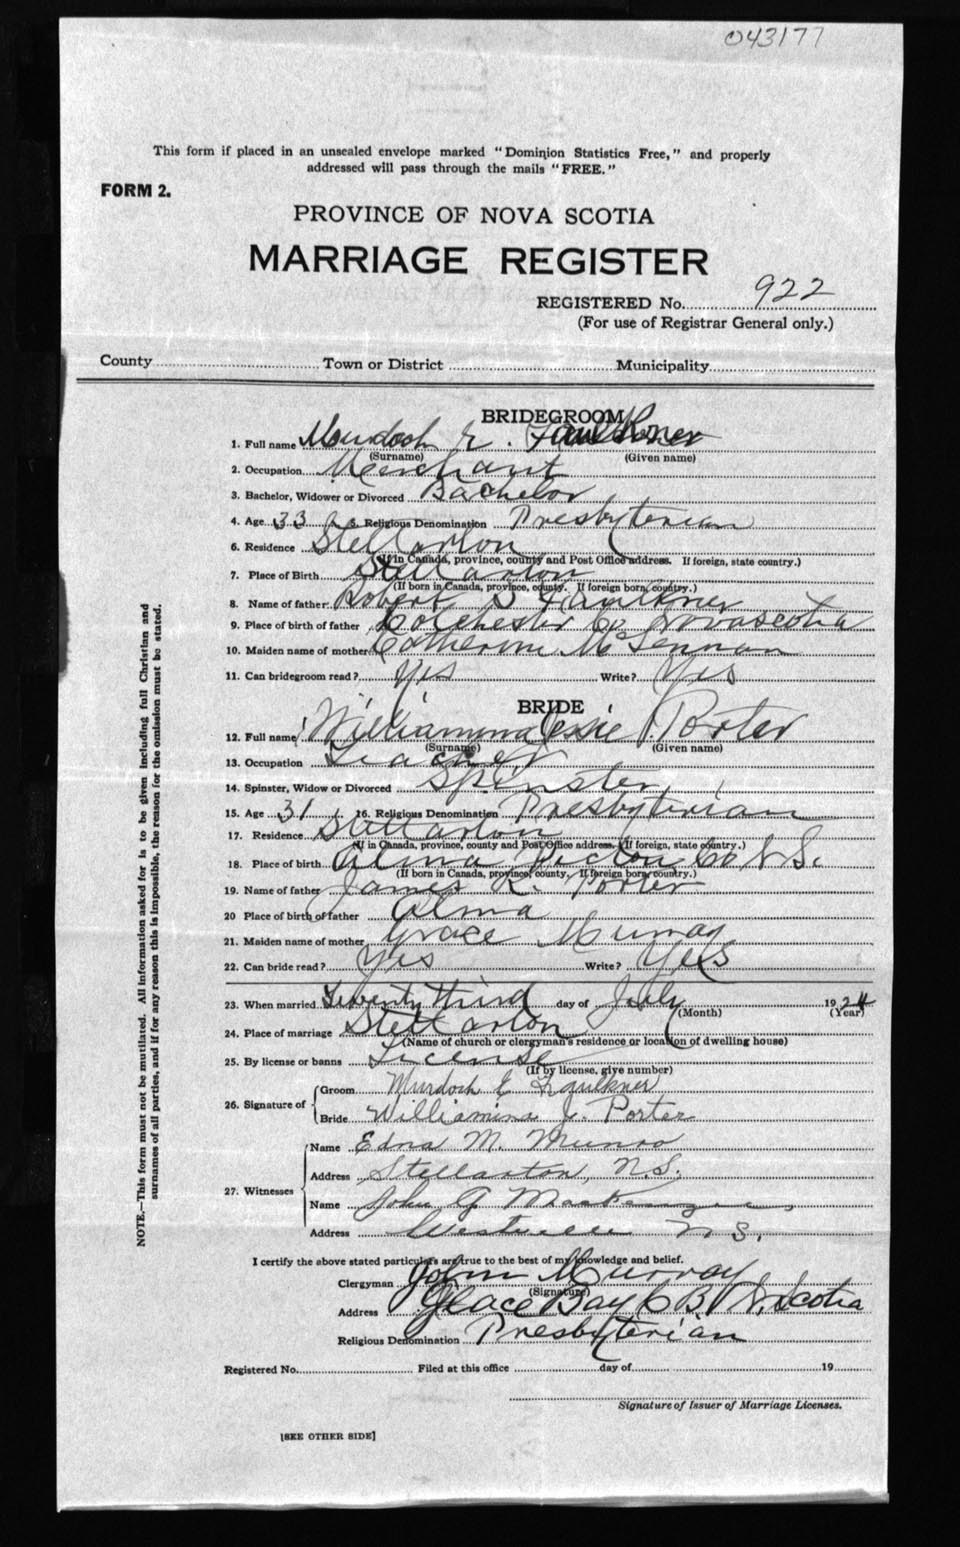 043177
This form if placed in an unsealed envelope marked "Dominion Statistics Free," and properly
addressed will pass through the mails "FREE."
FORM 2.
PROVINCE OF NOVA SCOTIA
MARRIAGE REGISTER
REGISTERED No. 922
(For use of Registrar General only.)
County Town or District Municipality
BRIDEGROOM
1. Full name Murdoch E. Faulkner
(Surname) (Given name)
2. Occupation Merchant
3. Bachelor, Widower or Divorced Bachelor
4. Age 33 5. Religious Denomination Presbyterian
6. Residence Stellarton
(If in Canada, province, county and Post Office address. If foreign, state country.)
7. Place of Birth Stellarton
(If born in Canada, province, county. If foreign born, country.)
8. Name of father Robert D Faulkner
9. Place of birth of father Colchester Co Novascotia
10. Maiden name of mother Catherine McLennan
11. Can bridegroom read? Yes Write? Yes
BRIDE
12. Full name Williamina Jessie Porter
(Surname) (Given name)
13. Occupation Teacher
14. Spinster, Widow or Divorced Spinster
15. Age 31 16. Religious Denomination Presbyterian
17. Residence Stellarton
(If in Canada, province, county and Post Office address. If foreign, state country.)
18. Place of birth Alma Pictou Co N.S.
(If born in Canada, province, county. If foreign born, country.)
19. Name of father James R. Porter
20 Place of birth of father Alma
21. Maiden name of mother Grace Murray
22. Can bride read? Yes Write? Yes
23. When married Twenty third day of July 1924
(Month) (Year)
24. Place of marriage Stellarton
(Name of church or clergyman's residence or location of dwelling house)
25. By license or banns License
(If by license, give number)
26. Signature of Groom Murdoch E Faulkner
Bride Williamina J. Porter
27. Witnesses Name Edna M. Munro
Address Stellarton, N.S.
Name John G MacKenzie
Address Westville N S.
I certify the above stated particulars are true to the best of my knowledge and belief.
Clergyman John Murray
(Signature)
Address Glace Bay C B. N. Scotia
Religious Denomination Presbyterian
Registered No. Filed at this office day of 19
Signature of Issuer of Marriage Licenses.
[SEE OTHER SIDE]
NOTE.—This form must not be mutilated. All information asked for is to be given including full Christian and
surnames of all parties, and if for any reason this is impossible, the reason for the omission must be stated.